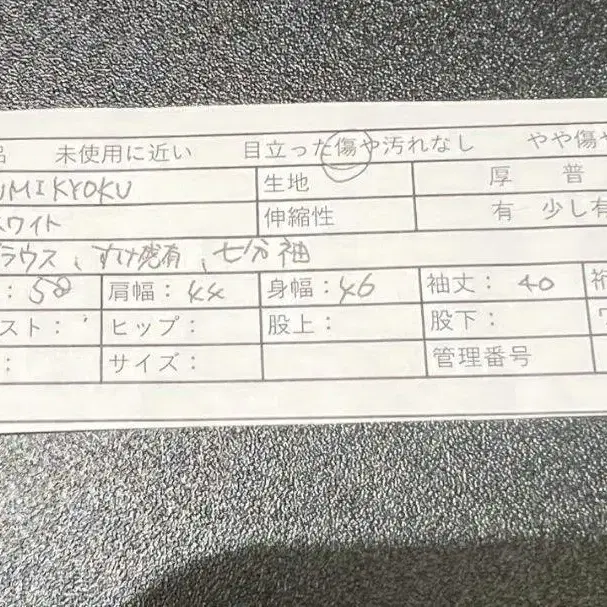 品 未使用に近い 目立った傷や汚れなし やや傷や
UMIKYOKU 生地 厚 普
ホワイト 伸縮性 有 少し有
ラウス、すけ感有、七分袖
: 58 肩幅: 44 身幅: 46 袖丈: 40 裄
スト: ヒップ: 股上: 股下: ワ
: サイズ: 管理番号